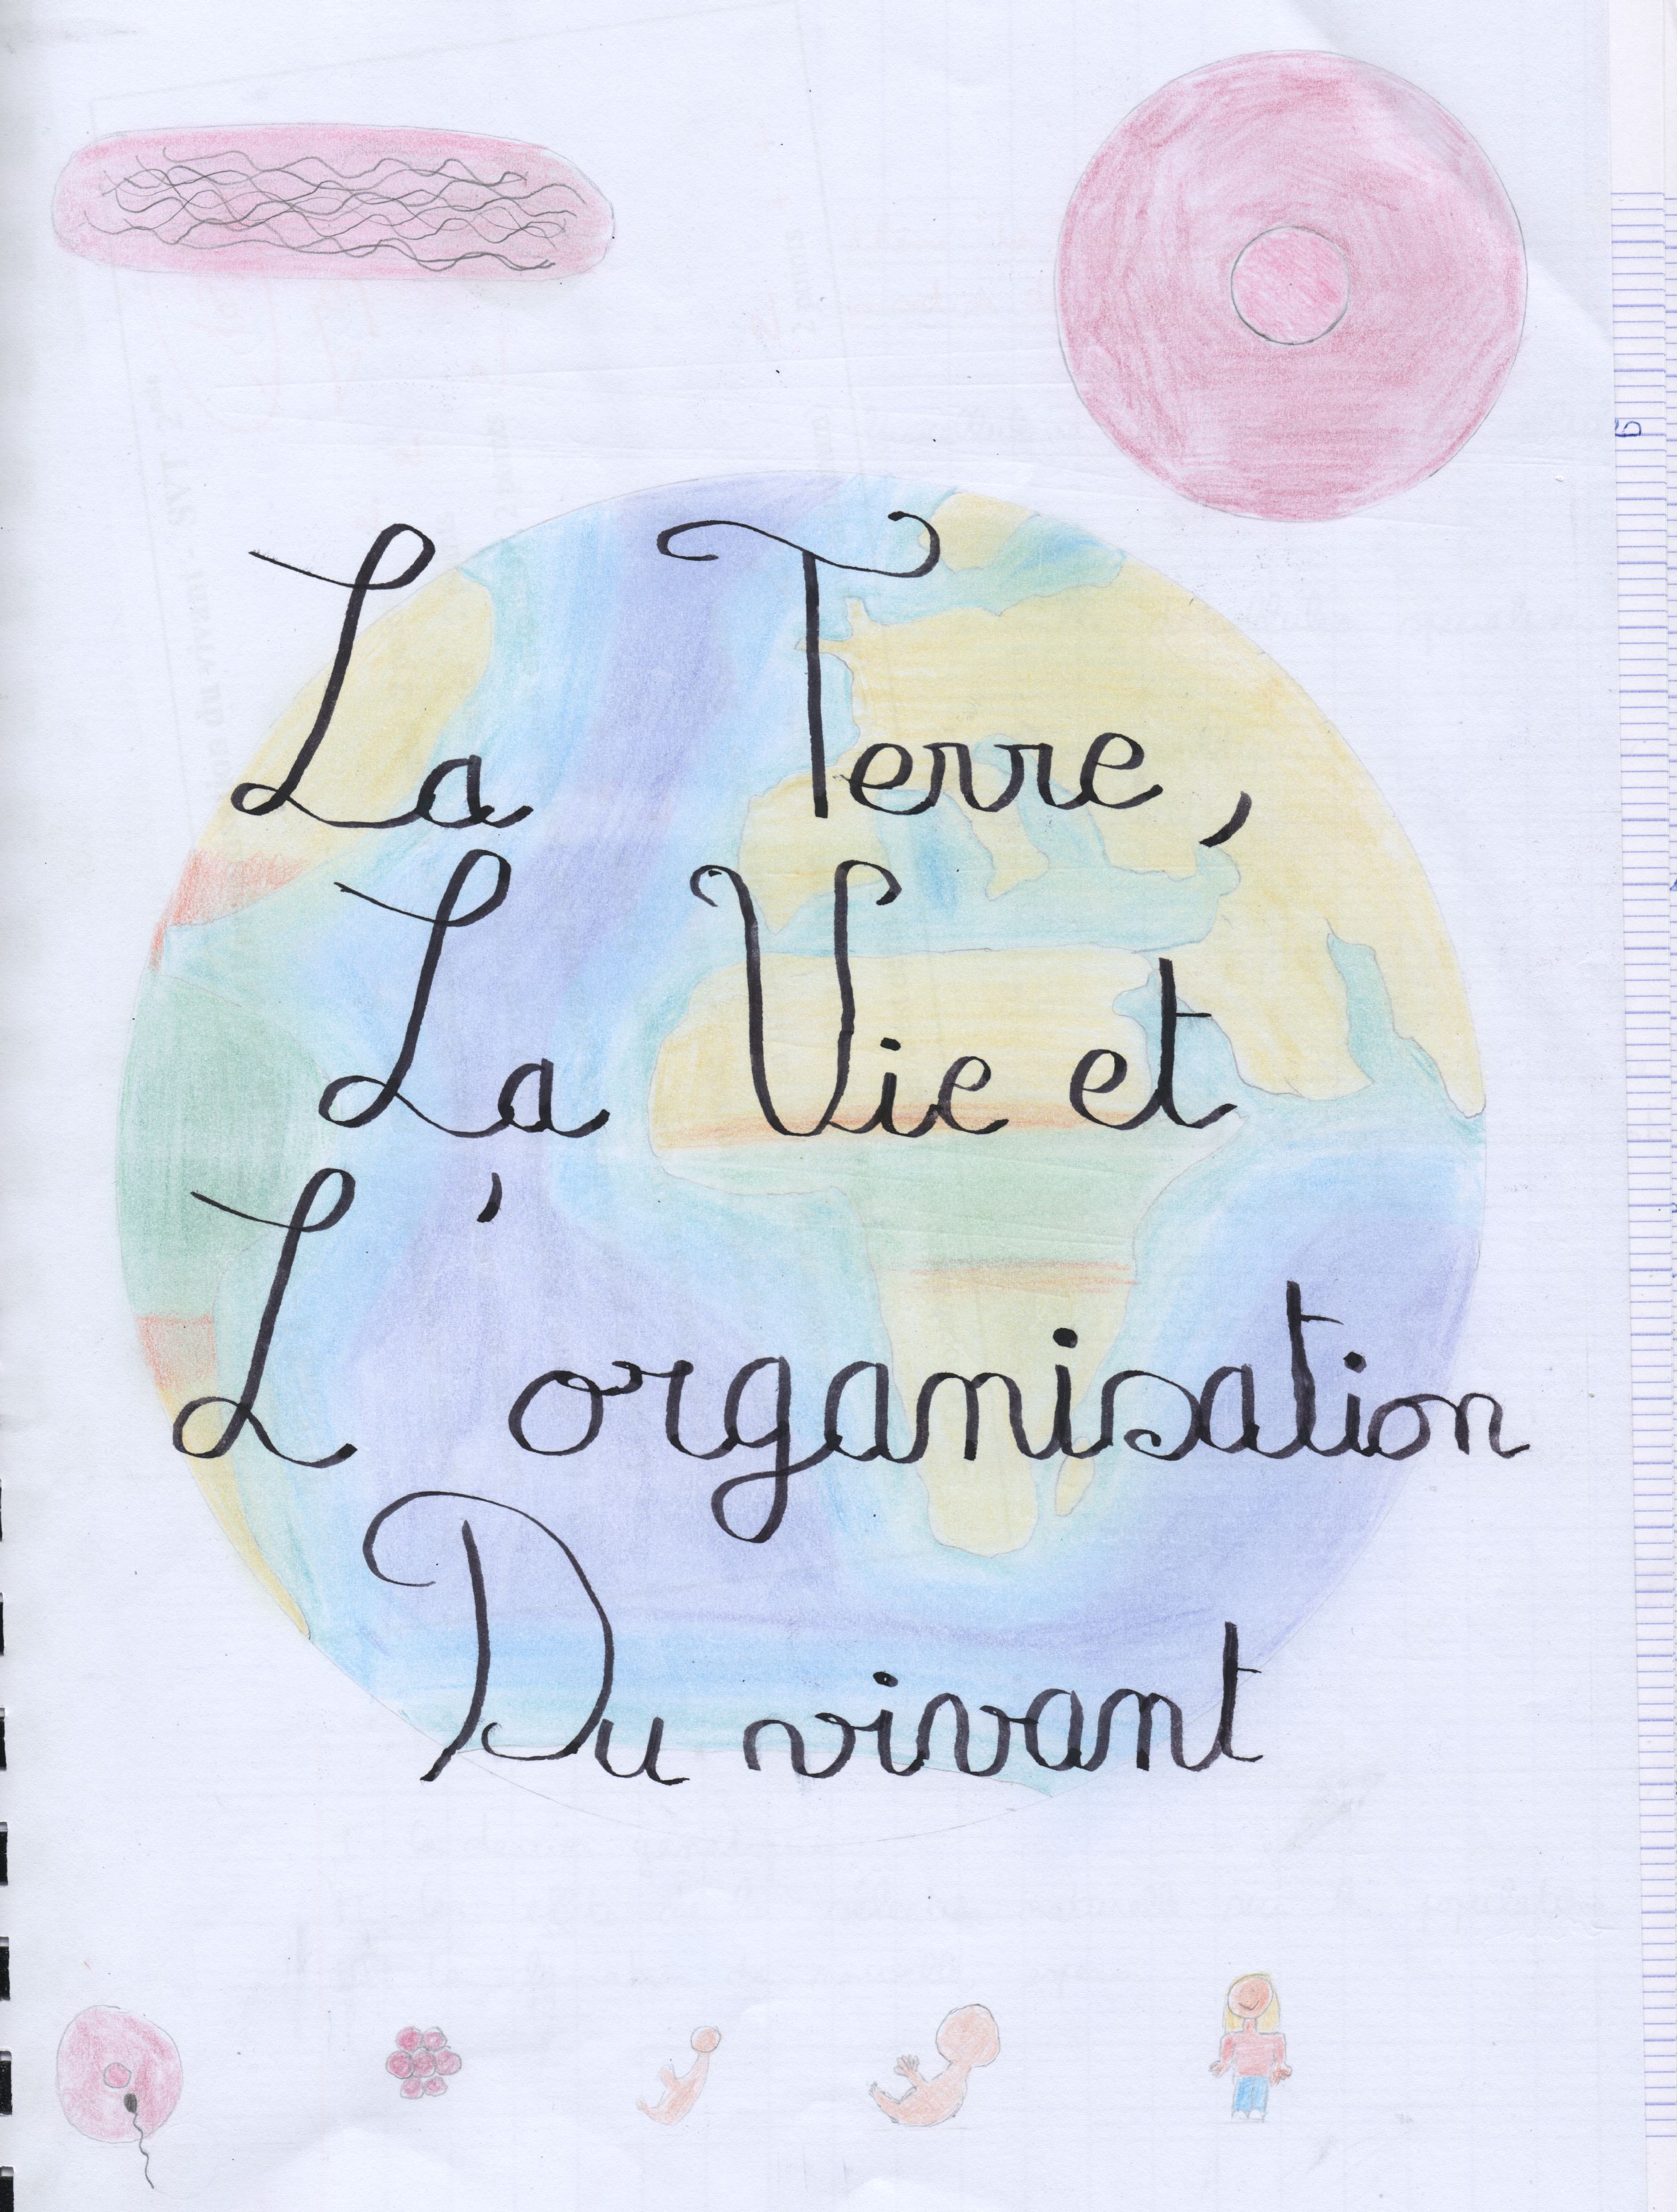 La Terre,
La Vie et
L'organisation
Du vivant